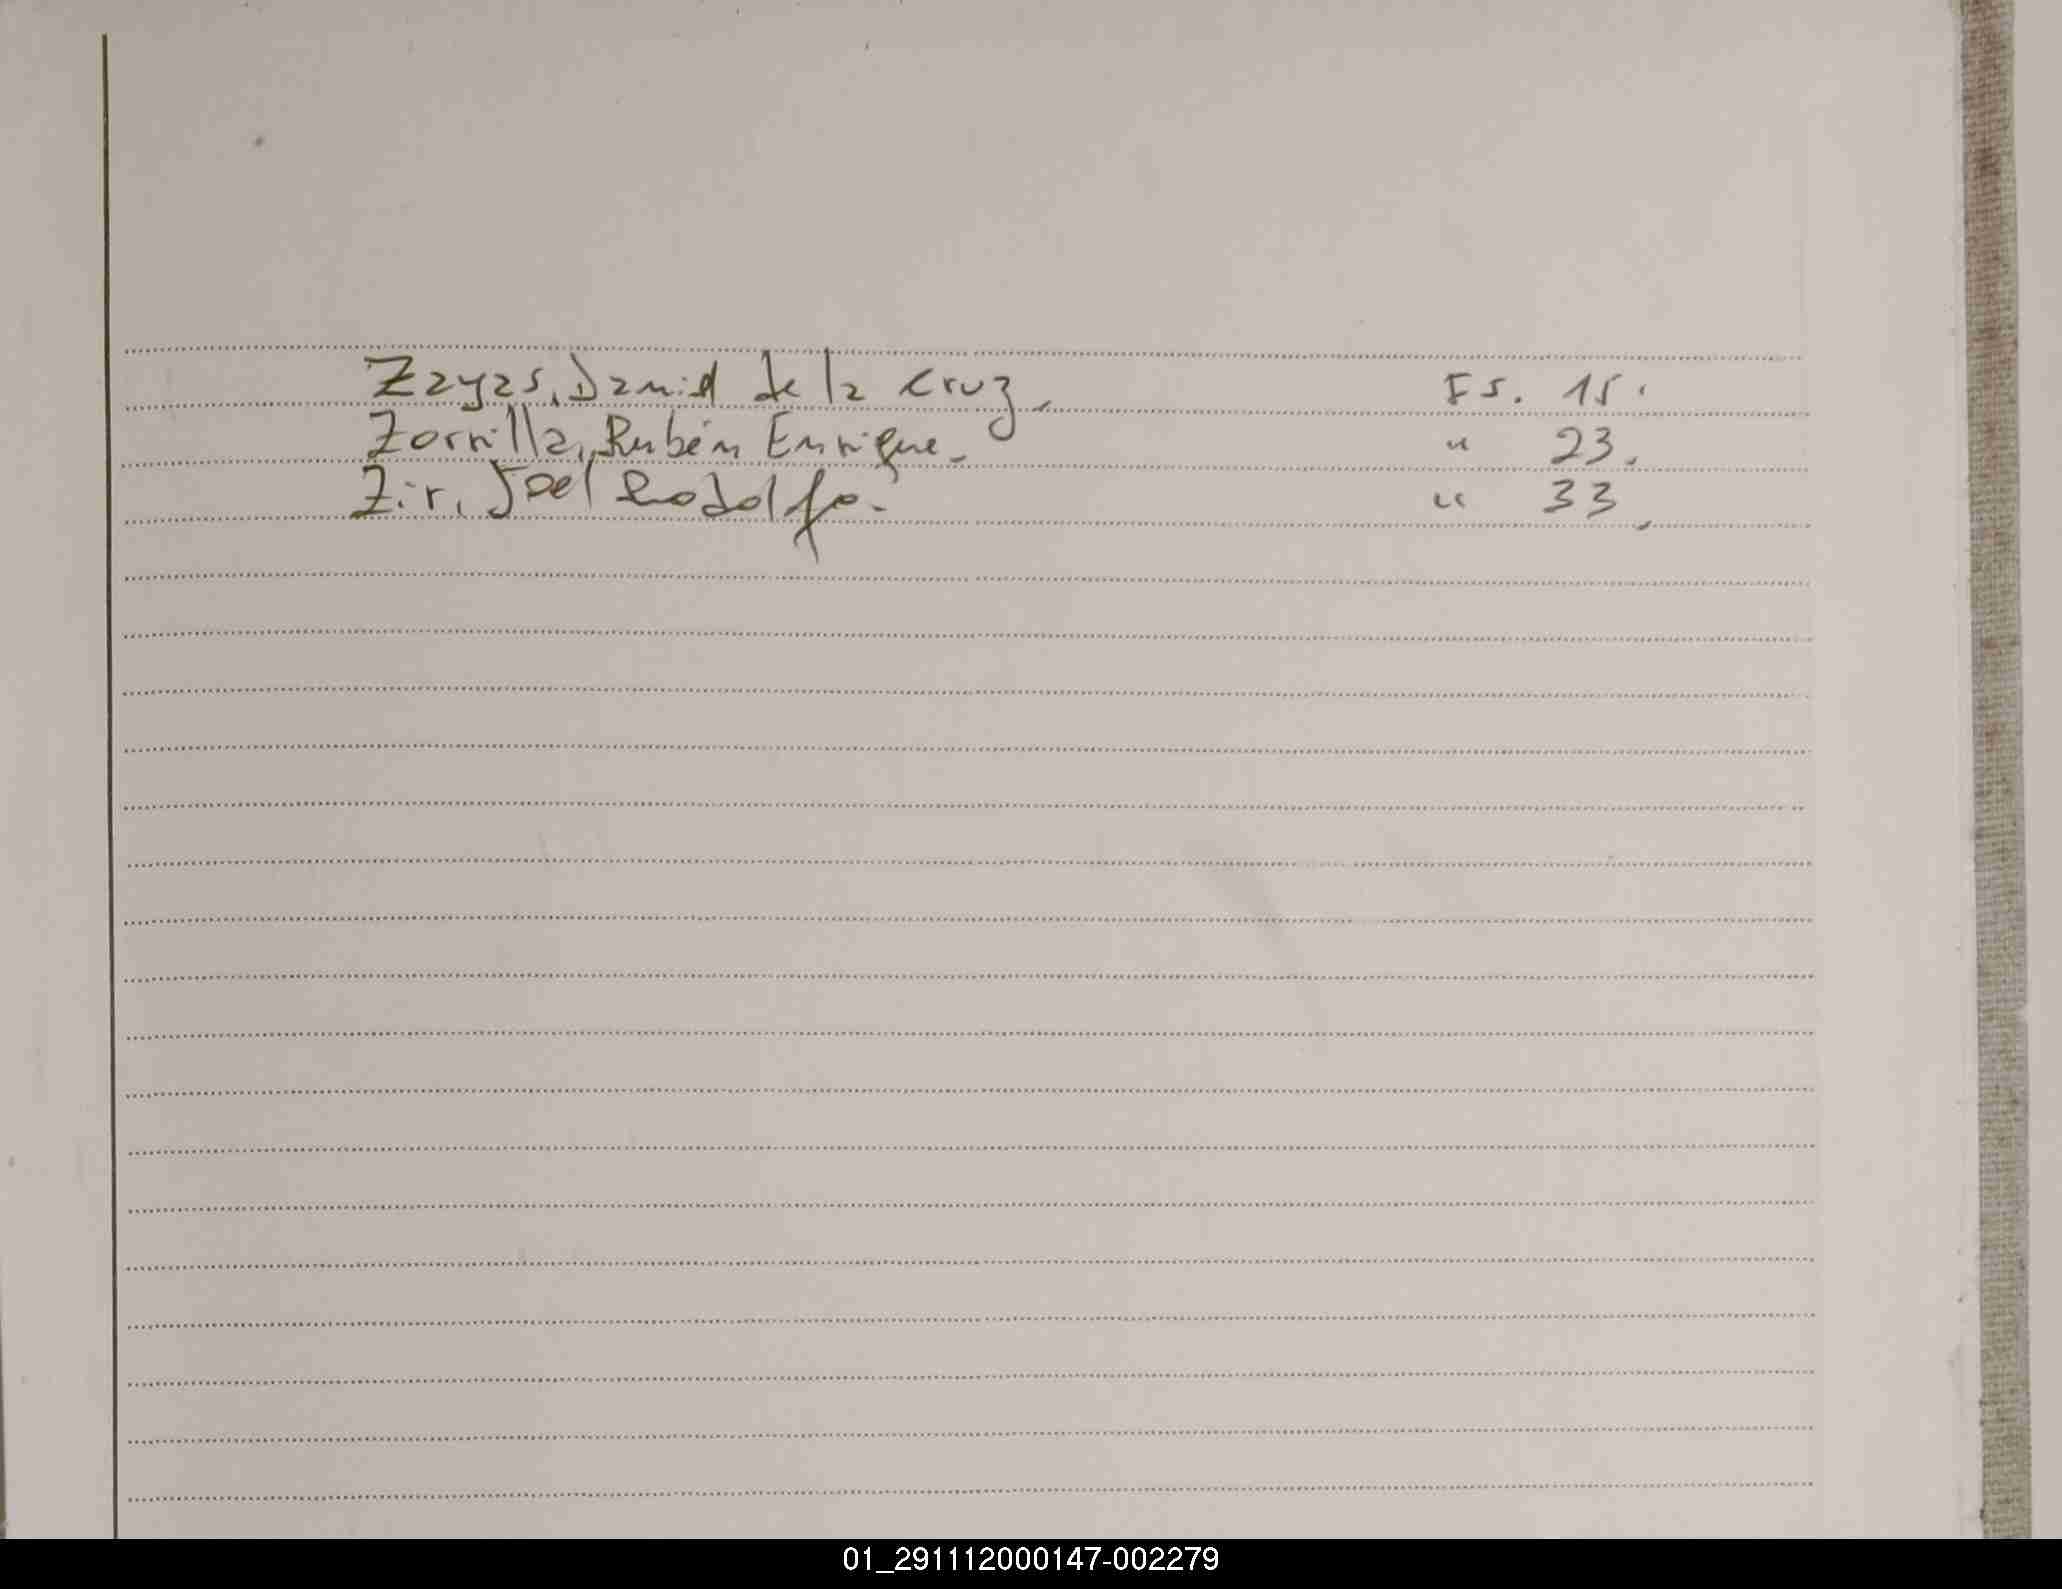 Zayas, Daniel de la Cruz. Fs. 15.
Zorrilla, Rubén Enrique. " 23.
Zir, Joel Rodolfo. " 33.
01_291112000147-002279